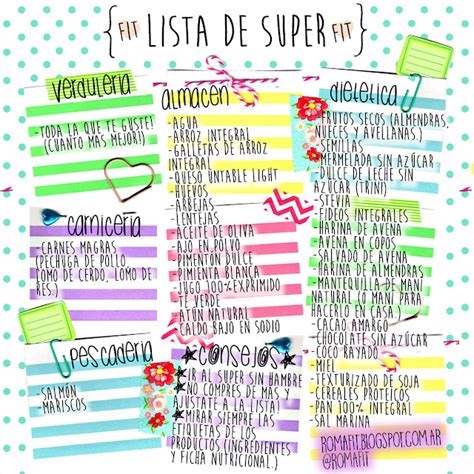 {FIT LISTA DE SUPER FIT}
VERDULERIA
-TODA LA QUE TE GUSTE!
(CUANTO MAS MEJOR!)
CARNICERIA
-CARNES MAGRAS
(PECHUGA DE POLLO
LOMO DE CERDO, LOMO DE
RES.)
PESCADERIA
-SALMÓN
-MARISCOS
ALMACÉN
-AGUA
-ARROZ INTEGRAL
-GALLETAS DE ARROZ
INTEGRAL
-QUESO UNTABLE LIGHT
-HUEVOS
-ARBEJAS
-LENTEJAS
-ACEITE DE OLIVA
-AJO EN POLVO
-PIMENTÓN DULCE
-PIMIENTA BLANCA
-JUGO 100%EXPRIMIDO
-TE VERDE
-ATÚN NATURAL
-CALDO BAJO EN SODIO
CONSEJOS
IR AL SUPER SIN HAMBRE
NO COMPRES DE MAS Y
AJUSTATE A LA LISTA!
MIRAR SIEMPRE LAS
ETIQUETAS DE LOS
PRODUCTOS(INGREDIENTES
Y FICHA NUTRICIONAL.)
DIETETICA
-FRUTOS SECOS (ALMENDRAS,
NUECES Y AVELLANAS.)
-SEMILLAS
-MERMELADA SIN AZÚCAR
-DULCE DE LECHE SIN
AZÚCAR (TRINI)
-STEVIA
-FIDEOS INTEGRALES
-HARINA DE AVENA
-AVENA EN COPOS
-SALVADO DE AVENA
-HARINA DE ALMENDRAS
-MANTEQUILLA DE MANÍ
NATURAL (O MANÍ PARA
HACERLO EN CASA.)
-CACAO AMARGO
-CHOCOLATE SIN AZÚCAR
-COCO RAYADO
-MIEL
-TEXTURIZADO DE SOJA
-CEREALES PROTEICOS
-PAN 100% INTEGRAL
-SAL MARINA
ROMAFIT.BLOGSPOT.COM.AR
@ROMAFIT